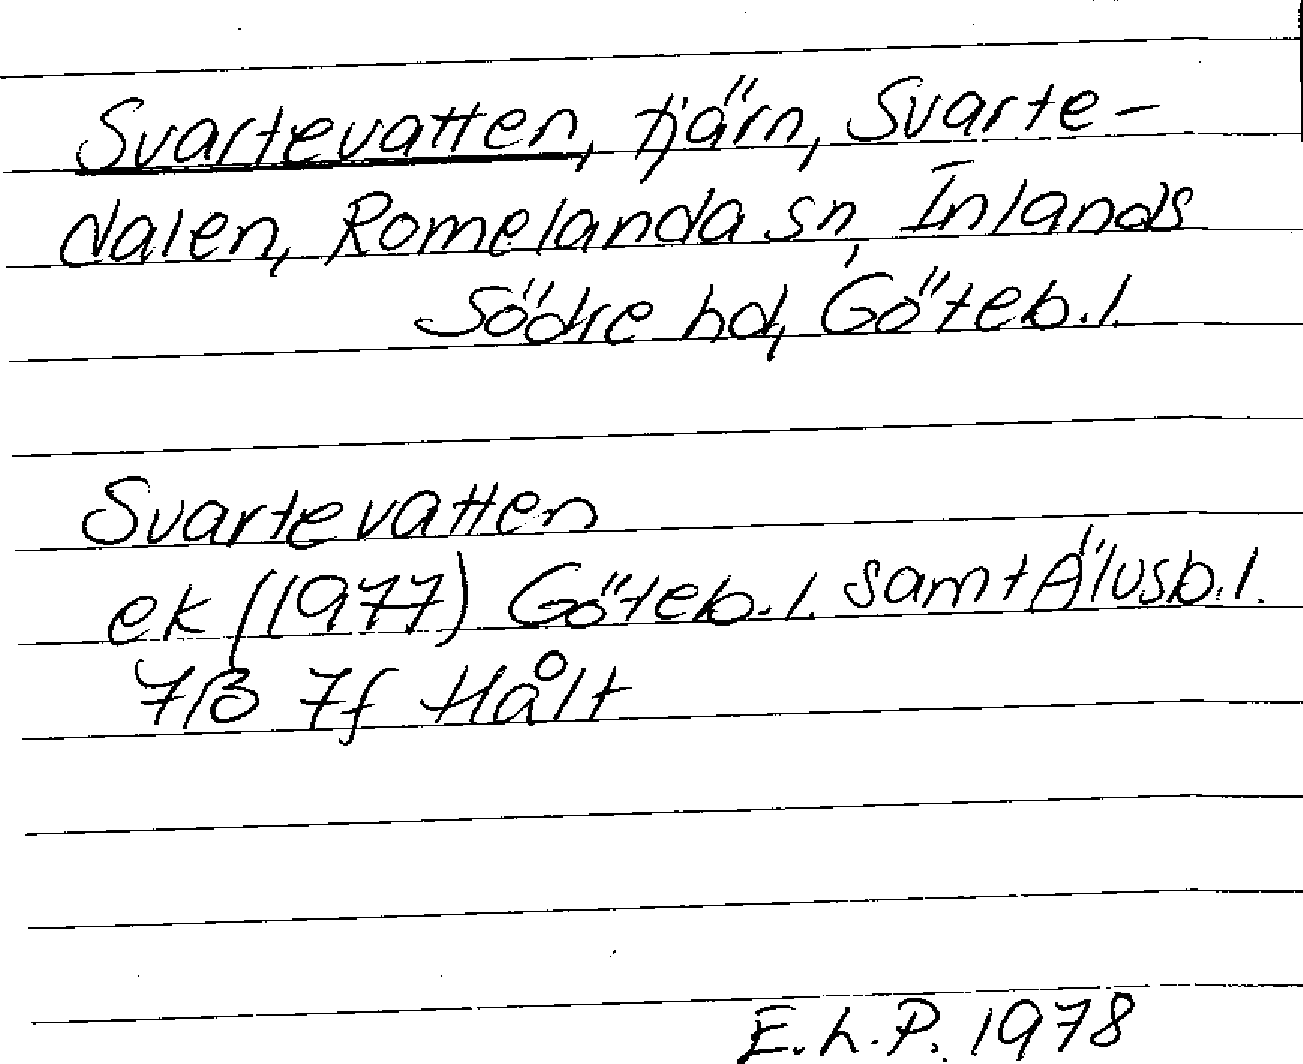 Svartevatten, tjärn, Svarte-
dalen, Romelanda sn, Inlands
Södre hd, Göteb.l.
Svartevatten
ek (1977) Göteb.l. samt Älvsb.l.
7B 7f Hålt
E.L.P. 1978